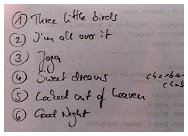 ① Three little birds
② I'm all over it
③ Joga
④ Sweet dreams
⑤ Locked out of heaven
⑥ Good Night